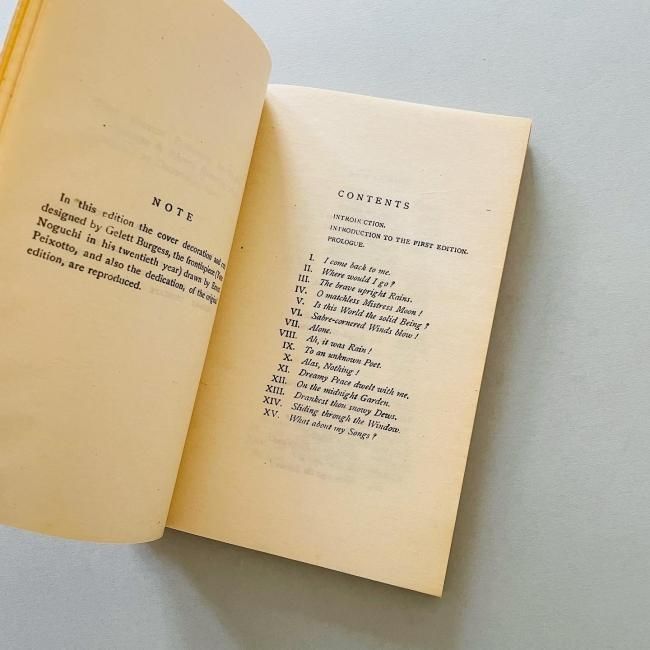 NOTE
In this edition the cover decoration and
designed by Gelett Burgess, the frontispiece
Noguchi in his twentieth year) drawn by
Peixotto, and also the dedication, of the original
edition, are reproduced.
CONTENTS
INTRODUCTION.
INTRODUCTION TO THE FIRST EDITION.
PROLOGUE.
I. I come back to me.
II. Where would I go?
III. The brave upright Rains.
IV. O matchless Mistress Moon!
V. Is this World the solid Being?
VI. Sabre-cornered Winds blow!
VII. Alone.
VIII. Ah, it was Rain!
IX. To an unknown Poet.
X. Alas, Nothing!
XI. Dreamy Peace dwelt with me.
XII. On the midnight Garden.
XIII. Drankest thou snowy Dews.
XIV. Sliding through the Window.
XV. What about my Songs?